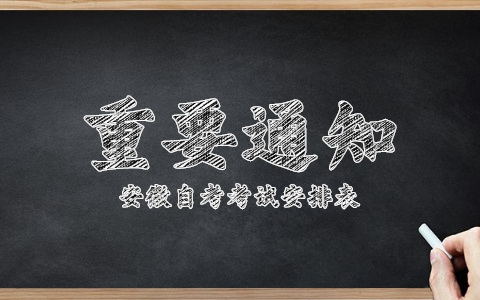 重要通知
安徽自考考试安排表